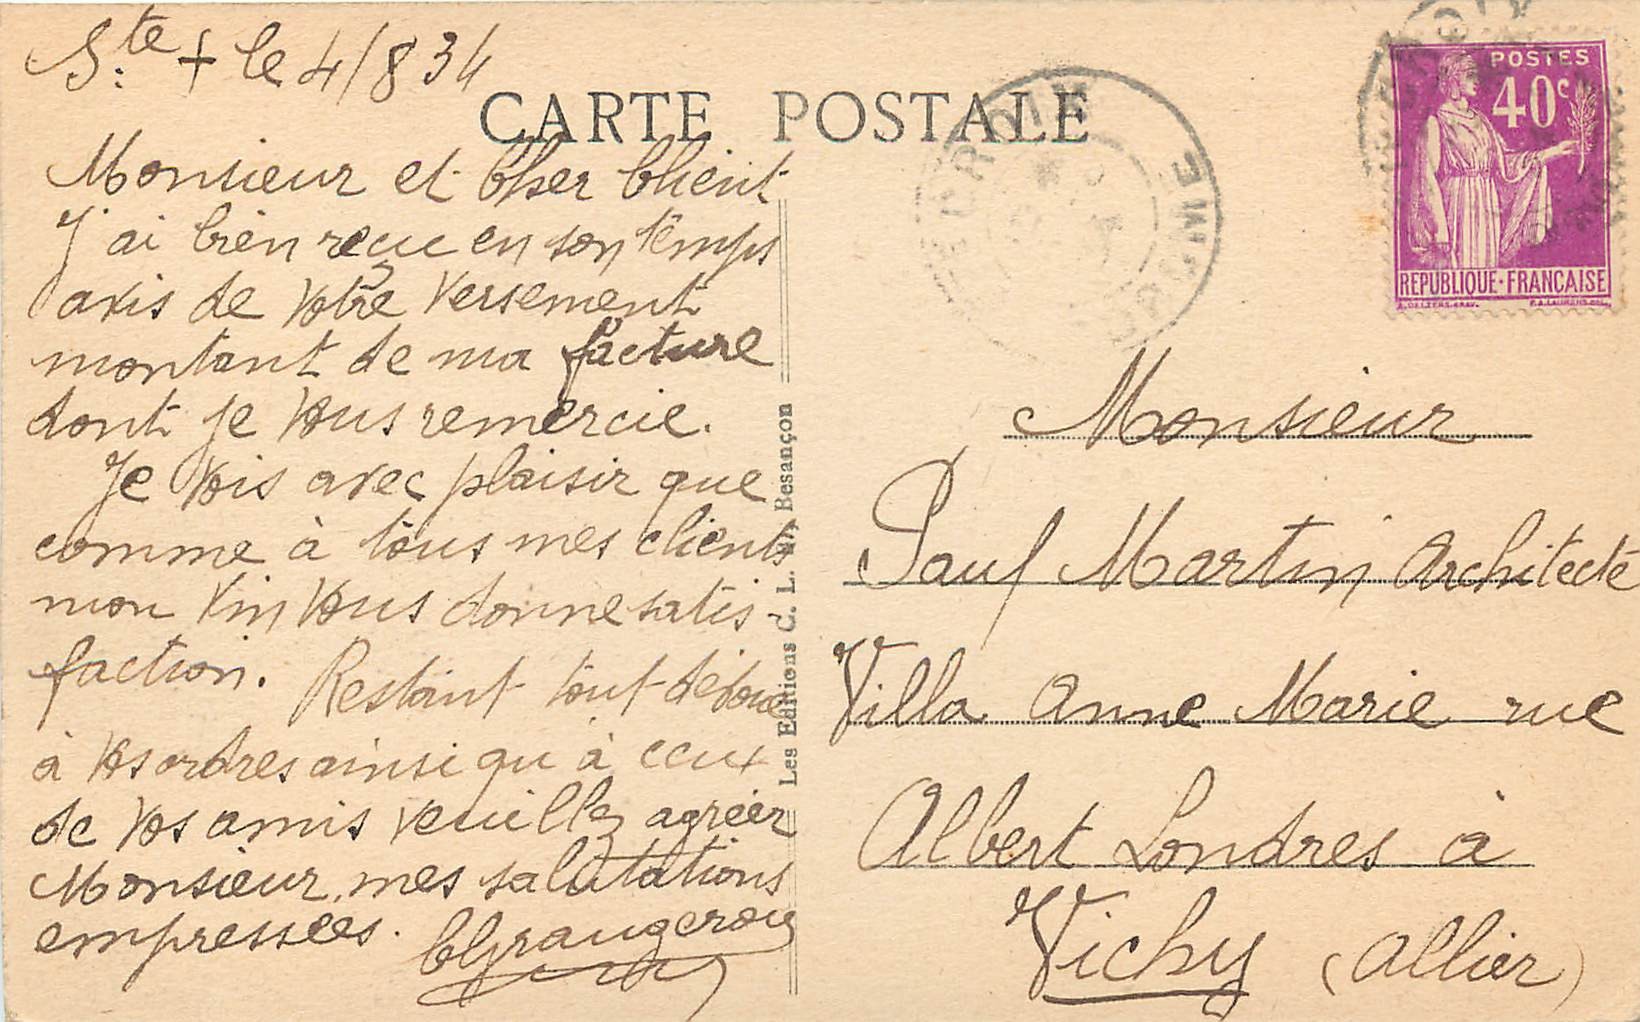 Ste + le 4/8 34
CARTE POSTALE
Monsieur et Cher Client
J'ai bien reçu en son temps
avis de votre versement
montant de ma facture
dont je vous remercie.
Je vois avec plaisir que
comme à tous mes clients
mon vin vous donne satis-
faction. Restant tout dévoué
à vos ordres ainsi qu'à ceux
de vos amis veuillez agréer
Monsieur, mes salutations
empressées.
Les Editions C. L. B., Besançon
CROIX
POSTES
40c
REPUBLIQUE·FRANÇAISE
Monsieur
Paul Martin Architecte
Villa Anne Marie rue
Albert Londres à
Vichy (Allier)